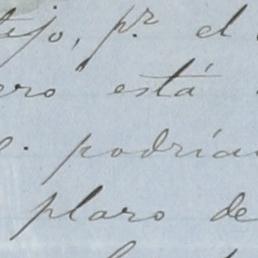 tejo, p.r el
ero está
e. podría
plaro de